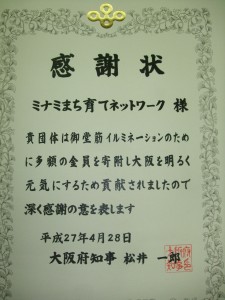 感謝状
ミナミまち育てネットワーク 様
貴団体は御堂筋イルミネーションのため
に多額の金員を寄附し大阪を明るく
元気にするため貢献されましたので
深く感謝の意を表します
平成27年4月28日
大阪府知事 松井 一郎